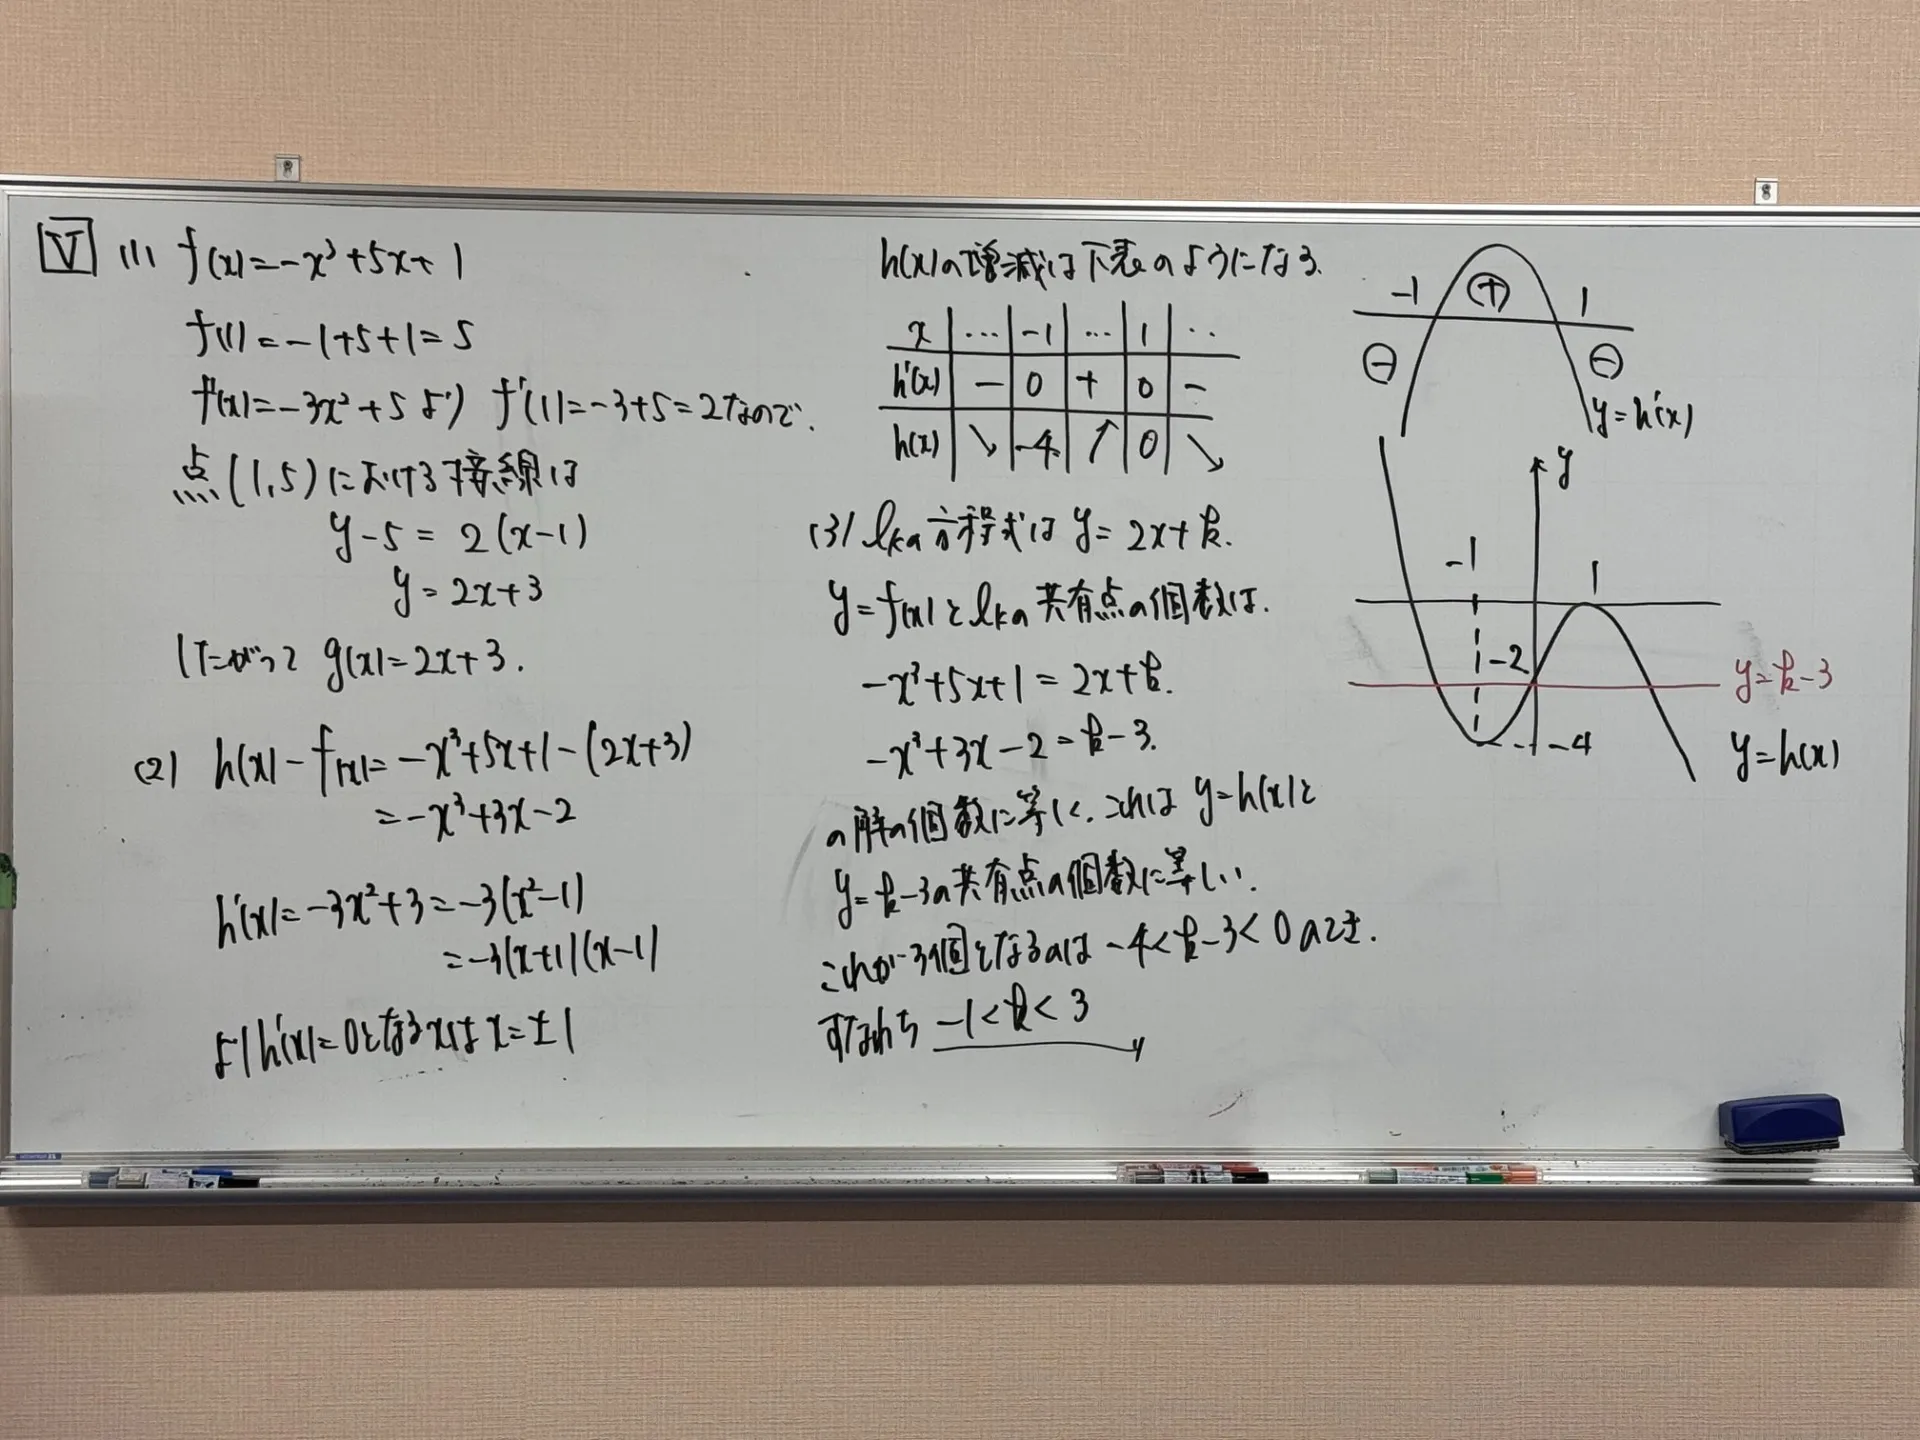 V (1) f(x)=-x³+5x+1
f(1)=-1+5+1=5
f'(x)=-3x²+5より f'(1)=-3+5=2なので、
点(1,5)における接線は
y-5=2(x-1)
y=2x+3
したがって g(x)=2x+3.
(2) h(x)-f(x)=-x³+5x+1-(2x+3)
=-x³+3x-2
h'(x)=-3x²+3=-3(x²-1)
=-3(x+1)(x-1)
より h'(x)=0となるxは x=±1
h(x)の増減は下表のようになる.
x … -1 … 1 ‥
h'(x) - 0 + 0 -
h(x) ↘ -4 ↗ 0 ↘
(3) lkの方程式は y=2x+k.
y=f(x)とlkの共有点の個数は.
-x³+5x+1=2x+k.
-x³+3x-2=k-3.
の解の個数に等しく.これは y=h(x)と
y=k-3の共有点の個数に等しい.
これが3個となるのは -4<k-3<0のとき.
すなわち -1<k<3
-1 + 1
- -
y=h'(x)
y
-1 1
-2
y=k-3
-4
y=h(x)